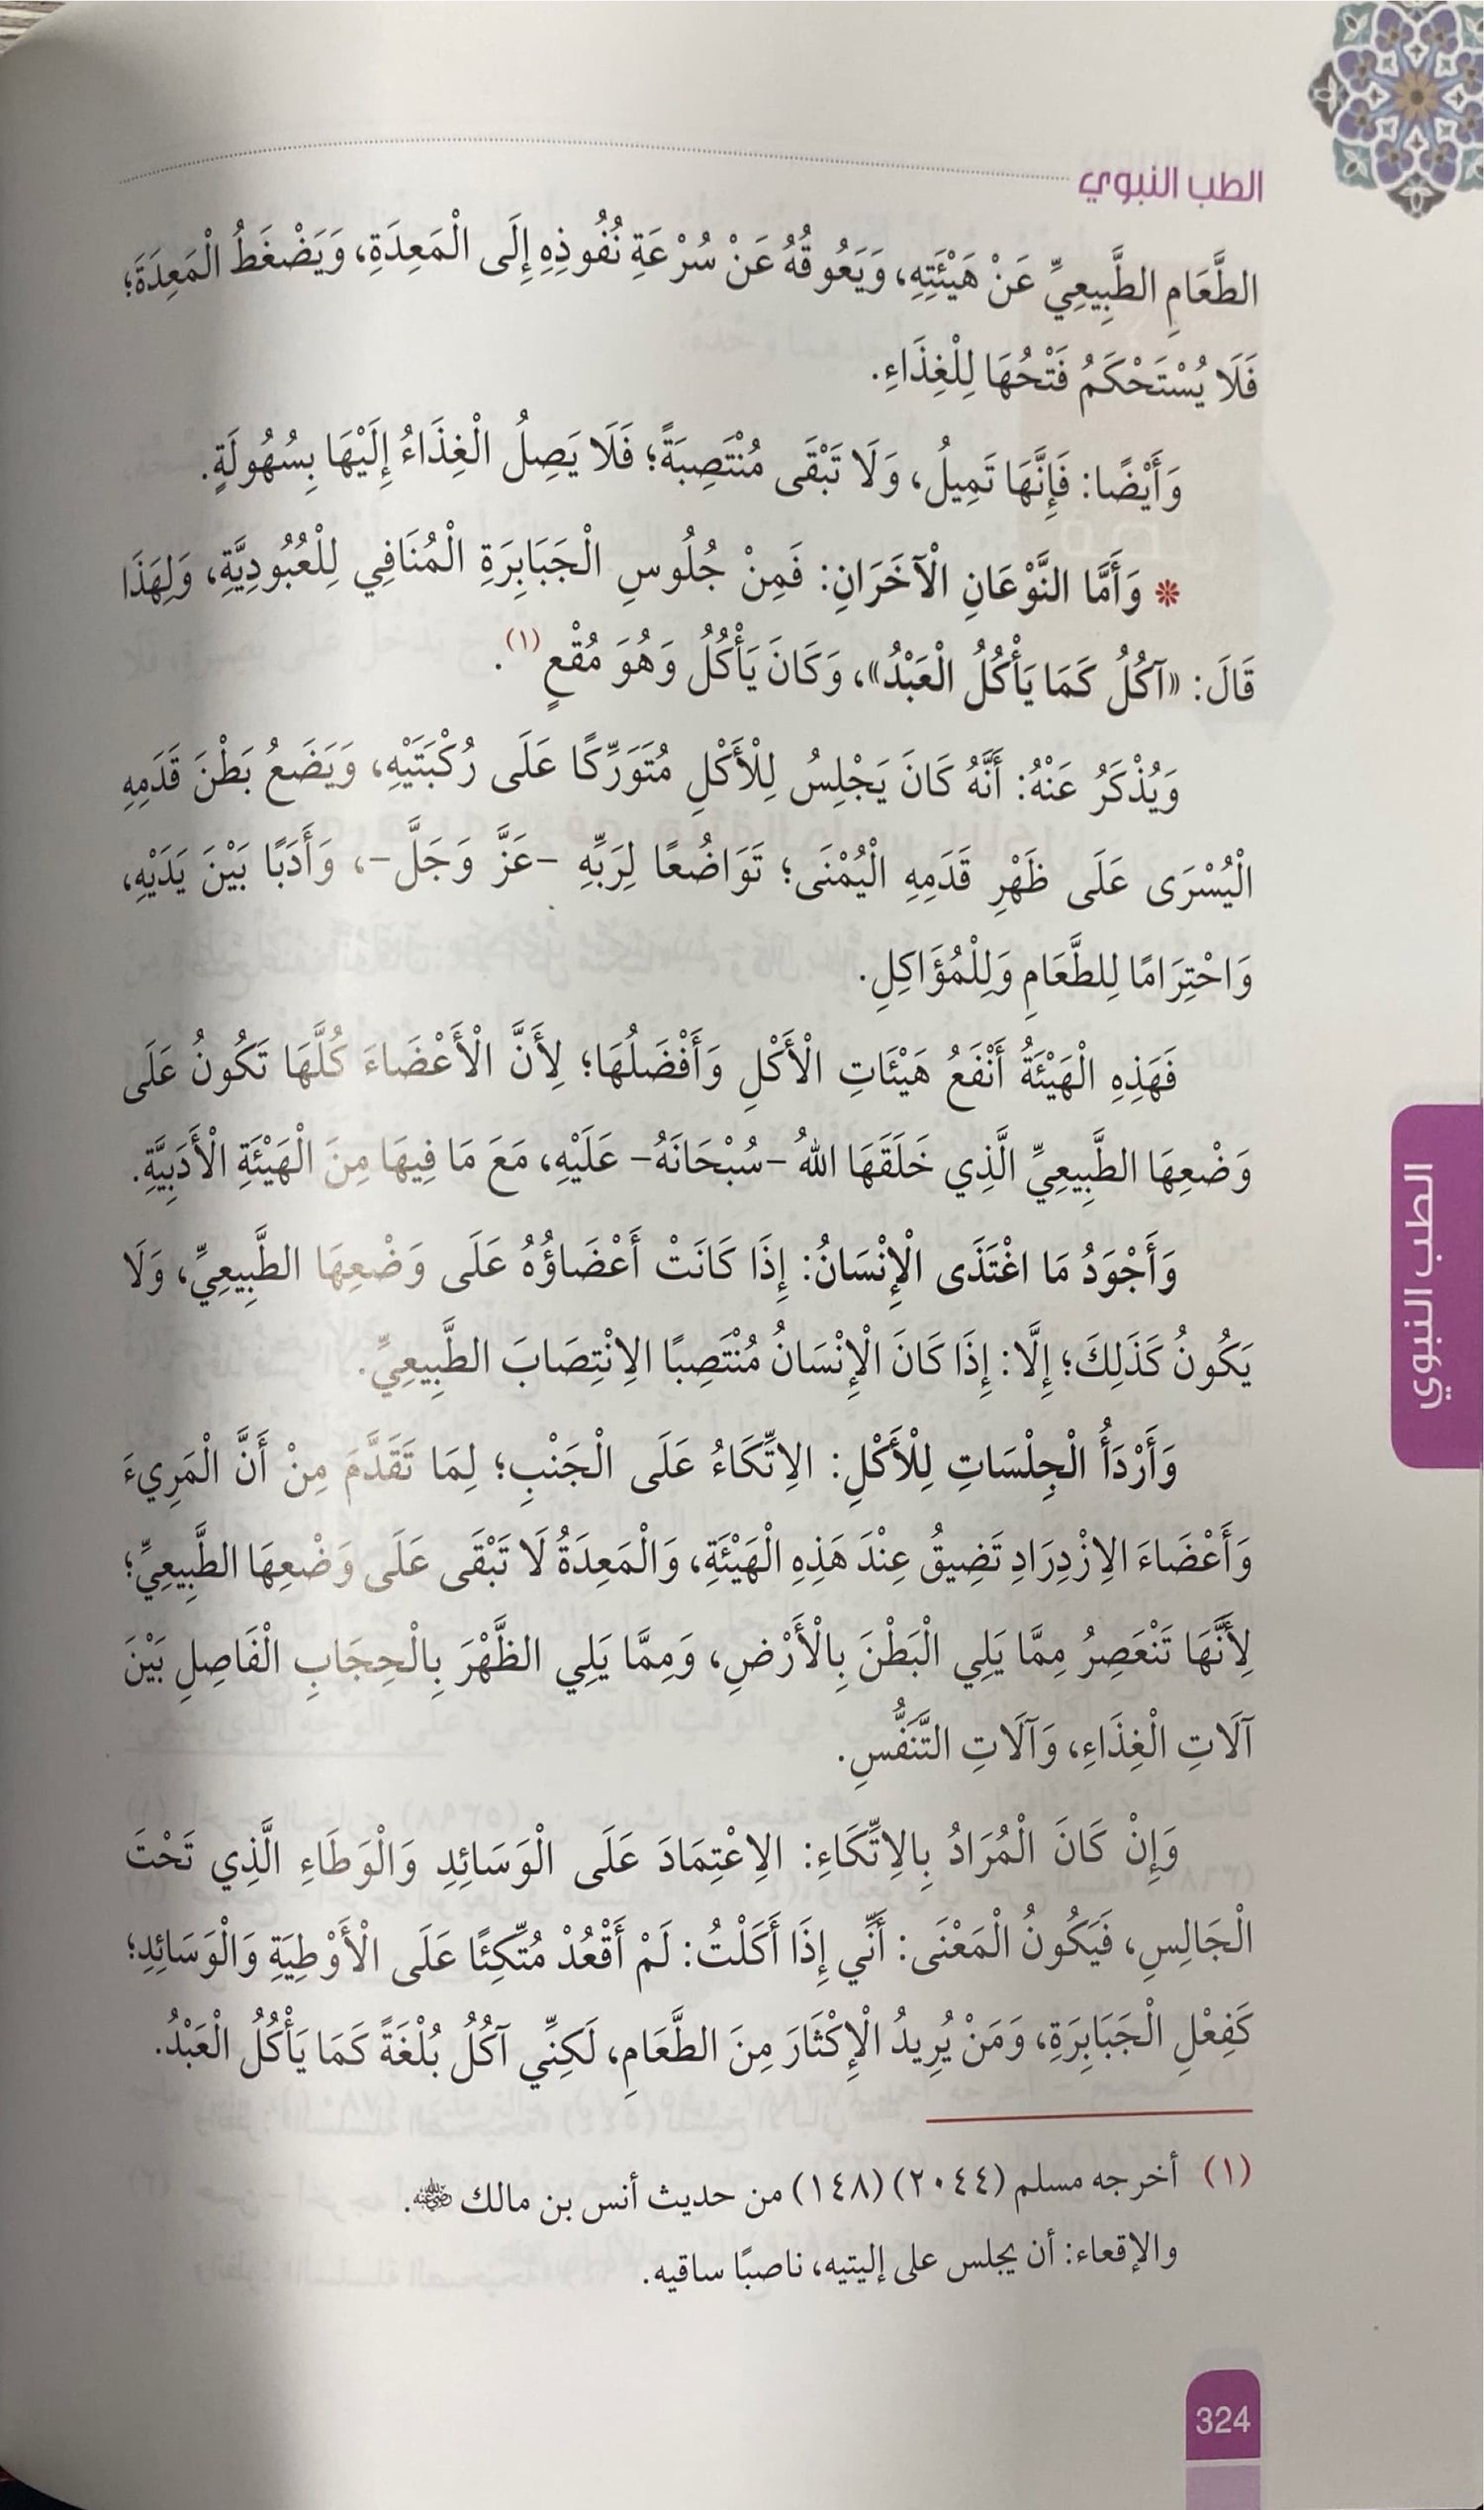 الطب النبوي
الطَّعَامِ الطَّبِيعِيِّ عَنْ هَيْئَتِهِ، وَيَعُوقُهُ عَنْ سُرْعَةِ نُفُوذِهِ إِلَى الْمَعِدَةِ، وَيَضْغَطُ الْمَعِدَةَ؛
فَلَا يُسْتَحْكَمُ فَتْحُهَا لِلْغِذَاءِ.
وَأَيْضًا: فَإِنَّهَا تَمِيلُ، وَلَا تَبْقَى مُنْتَصِبَةً؛ فَلَا يَصِلُ الْغِذَاءُ إِلَيْهَا بِسُهُولَةٍ.
* وَأَمَّا النَّوْعَانِ الْآخَرَانِ: فَمِنْ جُلُوسِ الْجَبَابِرَةِ الْمُنَافِي لِلْعُبُودِيَّةِ، وَلِهَذَا
قَالَ: «آكُلُ كَمَا يَأْكُلُ الْعَبْدُ»، وَكَانَ يَأْكُلُ وَهُوَ مُقْعٍ(١).
وَيُذْكَرُ عَنْهُ: أَنَّهُ كَانَ يَجْلِسُ لِلْأَكْلِ مُتَوَرِّكًا عَلَى رُكْبَتَيْهِ، وَيَضَعُ بَطْنَ قَدَمِهِ
الْيُسْرَى عَلَى ظَهْرِ قَدَمِهِ الْيُمْنَى؛ تَوَاضُعًا لِرَبِّهِ -عَزَّ وَجَلَّ-، وَأَدَبًا بَيْنَ يَدَيْهِ،
وَاحْتِرَامًا لِلطَّعَامِ وَلِلْمُؤَاكِلِ.
فَهَذِهِ الْهَيْئَةُ أَنْفَعُ هَيْئَاتِ الْأَكْلِ وَأَفْضَلُهَا؛ لِأَنَّ الْأَعْضَاءَ كُلَّهَا تَكُونُ عَلَى
وَضْعِهَا الطَّبِيعِيِّ الَّذِي خَلَقَهَا اللهُ -سُبْحَانَهُ- عَلَيْهِ، مَعَ مَا فِيهَا مِنَ الْهَيْئَةِ الْأَدَبِيَّةِ.
وَأَجْوَدُ مَا اغْتَذَى الْإِنْسَانُ: إِذَا كَانَتْ أَعْضَاؤُهُ عَلَى وَضْعِهَا الطَّبِيعِيِّ، وَلَا
يَكُونُ كَذَلِكَ؛ إِلَّا: إِذَا كَانَ الْإِنْسَانُ مُنْتَصِبًا الِانْتِصَابَ الطَّبِيعِيَّ.
وَأَرْدَأُ الْجِلْسَاتِ لِلْأَكْلِ: الِاتِّكَاءُ عَلَى الْجَنْبِ؛ لِمَا تَقَدَّمَ مِنْ أَنَّ الْمَرِيءَ
وَأَعْضَاءَ الِازْدِرَادِ تَضِيقُ عِنْدَ هَذِهِ الْهَيْئَةِ، وَالْمَعِدَةُ لَا تَبْقَى عَلَى وَضْعِهَا الطَّبِيعِيِّ؛
لِأَنَّهَا تَنْعَصِرُ مِمَّا يَلِي الْبَطْنَ بِالْأَرْضِ، وَمِمَّا يَلِي الظَّهْرَ بِالْحِجَابِ الْفَاصِلِ بَيْنَ
آلَاتِ الْغِذَاءِ، وَآلَاتِ التَّنَفُّسِ.
وَإِنْ كَانَ الْمُرَادُ بِالِاتِّكَاءِ: الِاعْتِمَادَ عَلَى الْوَسَائِدِ وَالْوَطَاءِ الَّذِي تَحْتَ
الْجَالِسِ، فَيَكُونُ الْمَعْنَى: أَنِّي إِذَا أَكَلْتُ: لَمْ أَقْعُدْ مُتَّكِئًا عَلَى الْأَوْطِيَةِ وَالْوَسَائِدِ؛
كَفِعْلِ الْجَبَابِرَةِ، وَمَنْ يُرِيدُ الْإِكْثَارَ مِنَ الطَّعَامِ، لَكِنِّي آكُلُ بُلْغَةً كَمَا يَأْكُلُ الْعَبْدُ.
(١) أخرجه مسلم (٢٠٤٤) (١٤٨) من حديث أنس بن مالك رضي الله عنه.
والإقعاء: أن يجلس على إليتيه، ناصبًا ساقيه.
الطب النبوي
324